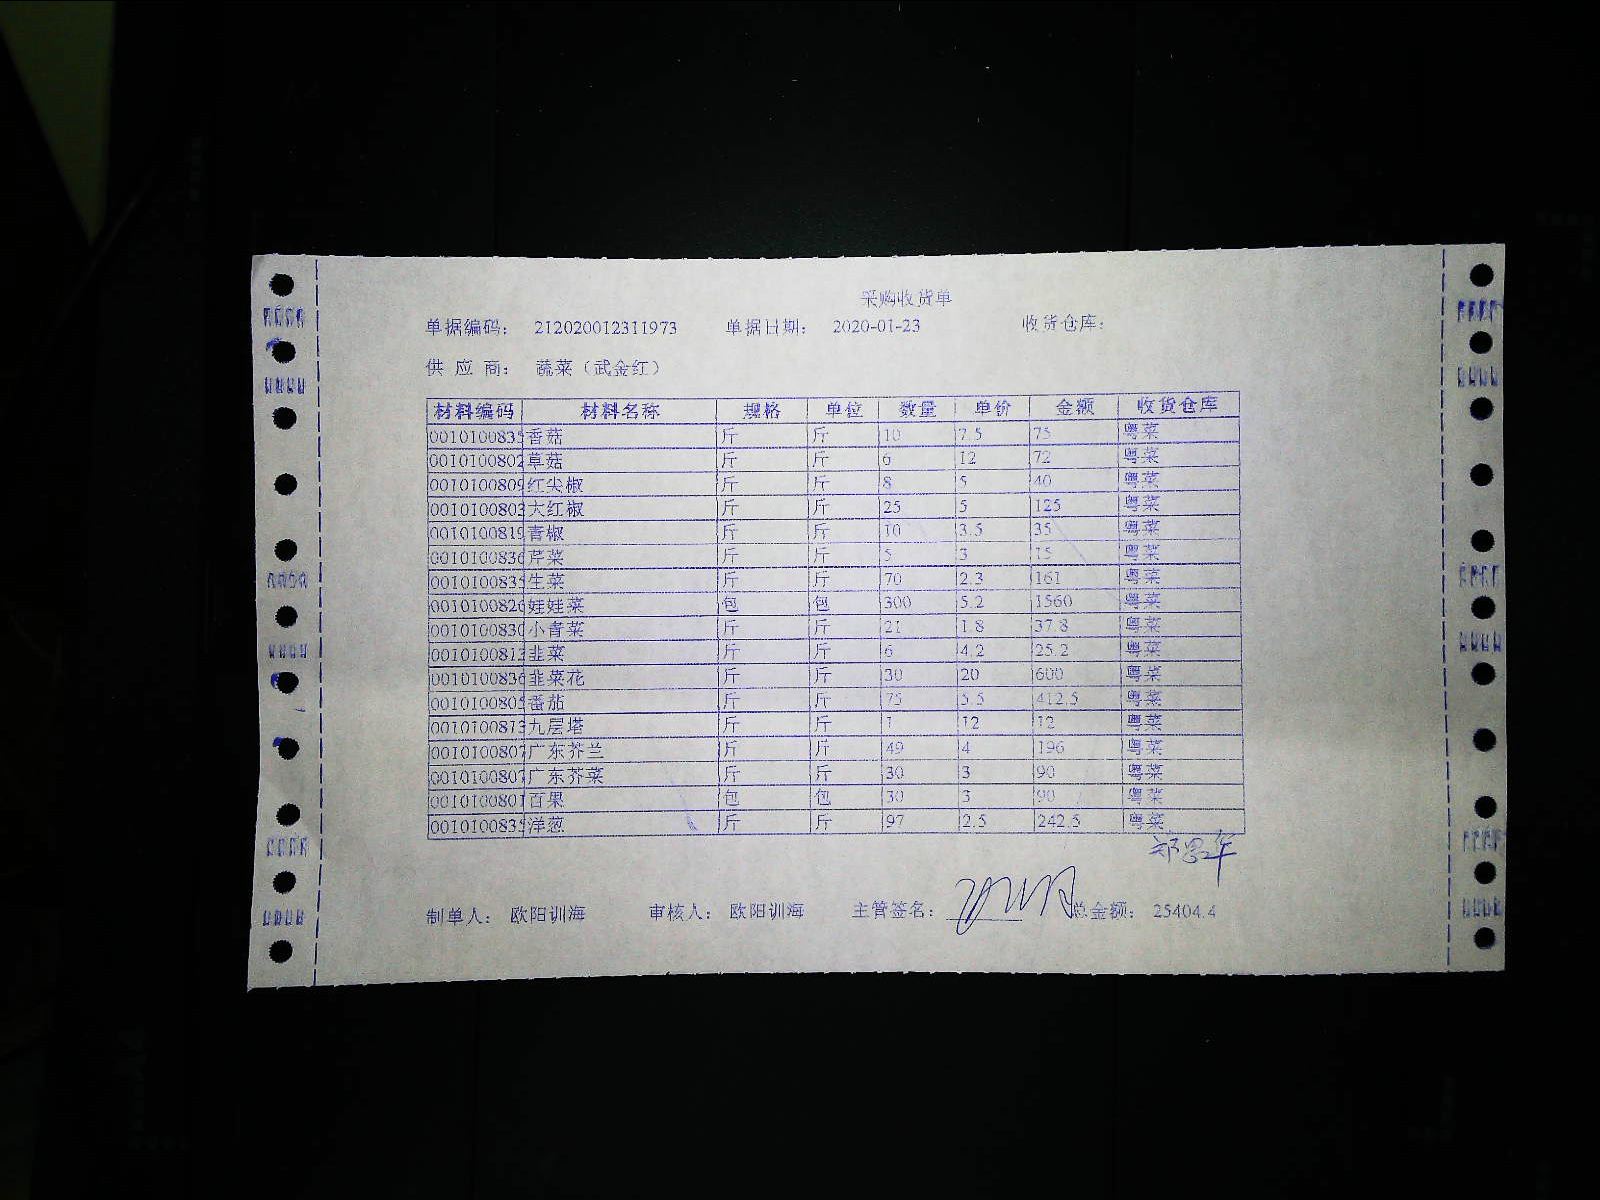 采购收货单
单据编码： 212020012311973 单据日期： 2020-01-23 收货仓库：
供 应 商： 蔬菜（武金红）
材料编码 材料名称 规格 单位 数量 单价 金额 收货仓库
0010100835 香菇 斤 斤 10 7.5 75 粤菜
0010100802 草菇 斤 斤 6 12 72 粤菜
0010100809 红尖椒 斤 斤 8 5 40 粤菜
0010100803 大红椒 斤 斤 25 5 125 粤菜
0010100819 青椒 斤 斤 10 3.5 35 粤菜
0010100836 芹菜 斤 斤 5 3 15 粤菜
0010100835 生菜 斤 斤 70 2.3 161 粤菜
0010100826 娃娃菜 包 包 300 5.2 1560 粤菜
0010100830 小青菜 斤 斤 21 1.8 37.8 粤菜
0010100813 韭菜 斤 斤 6 4.2 25.2 粤菜
0010100836 韭菜花 斤 斤 30 20 600 粤菜
0010100805 番茄 斤 斤 75 5.5 412.5 粤菜
0010100813 九层塔 斤 斤 1 12 12 粤菜
0010100807 广东芥兰 斤 斤 49 4 196 粤菜
0010100807 广东芥菜 斤 斤 30 3 90 粤菜
0010100801 百果 包 包 30 3 90 粤菜
0010100835 洋葱 斤 斤 97 2.5 242.5 粤菜
制单人： 欧阳训海 审核人： 欧阳训海 主管签名： 总金额： 25404.4